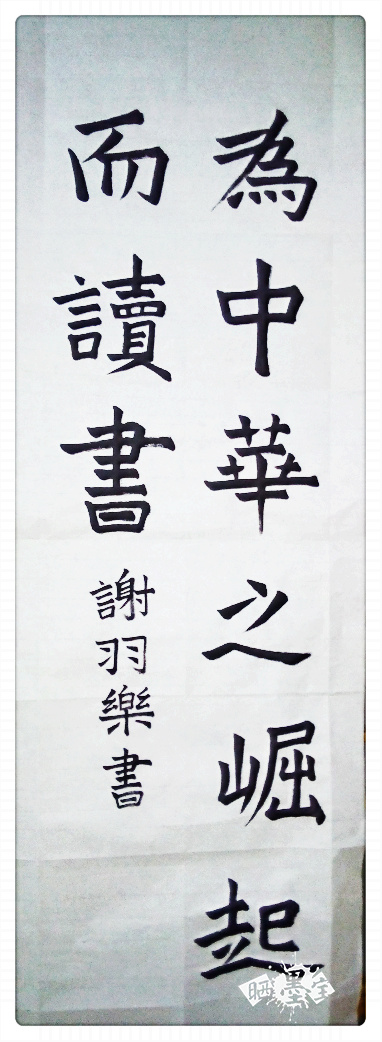 為中華之崛起
而讀書
謝羽樂書
晒墨宝